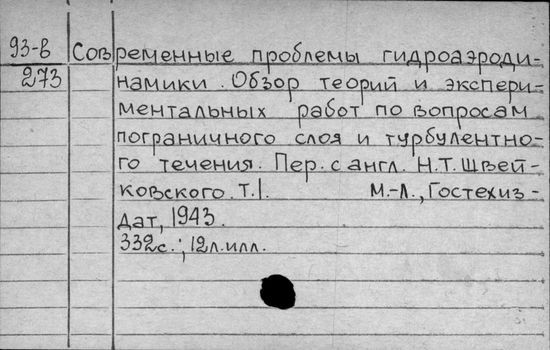 93-в Современные проблемы гидроаэроди-
273 намики. Обзор теорий и экспери-
ментальных работ по вопросам
пограничного слоя и турбулентно-
го течения. Пер. с англ. Н.Т. Швей-
ковского. Т.I. М.-Л., Гостехиз-
дат, 1943.
332с.; 12л.илл.